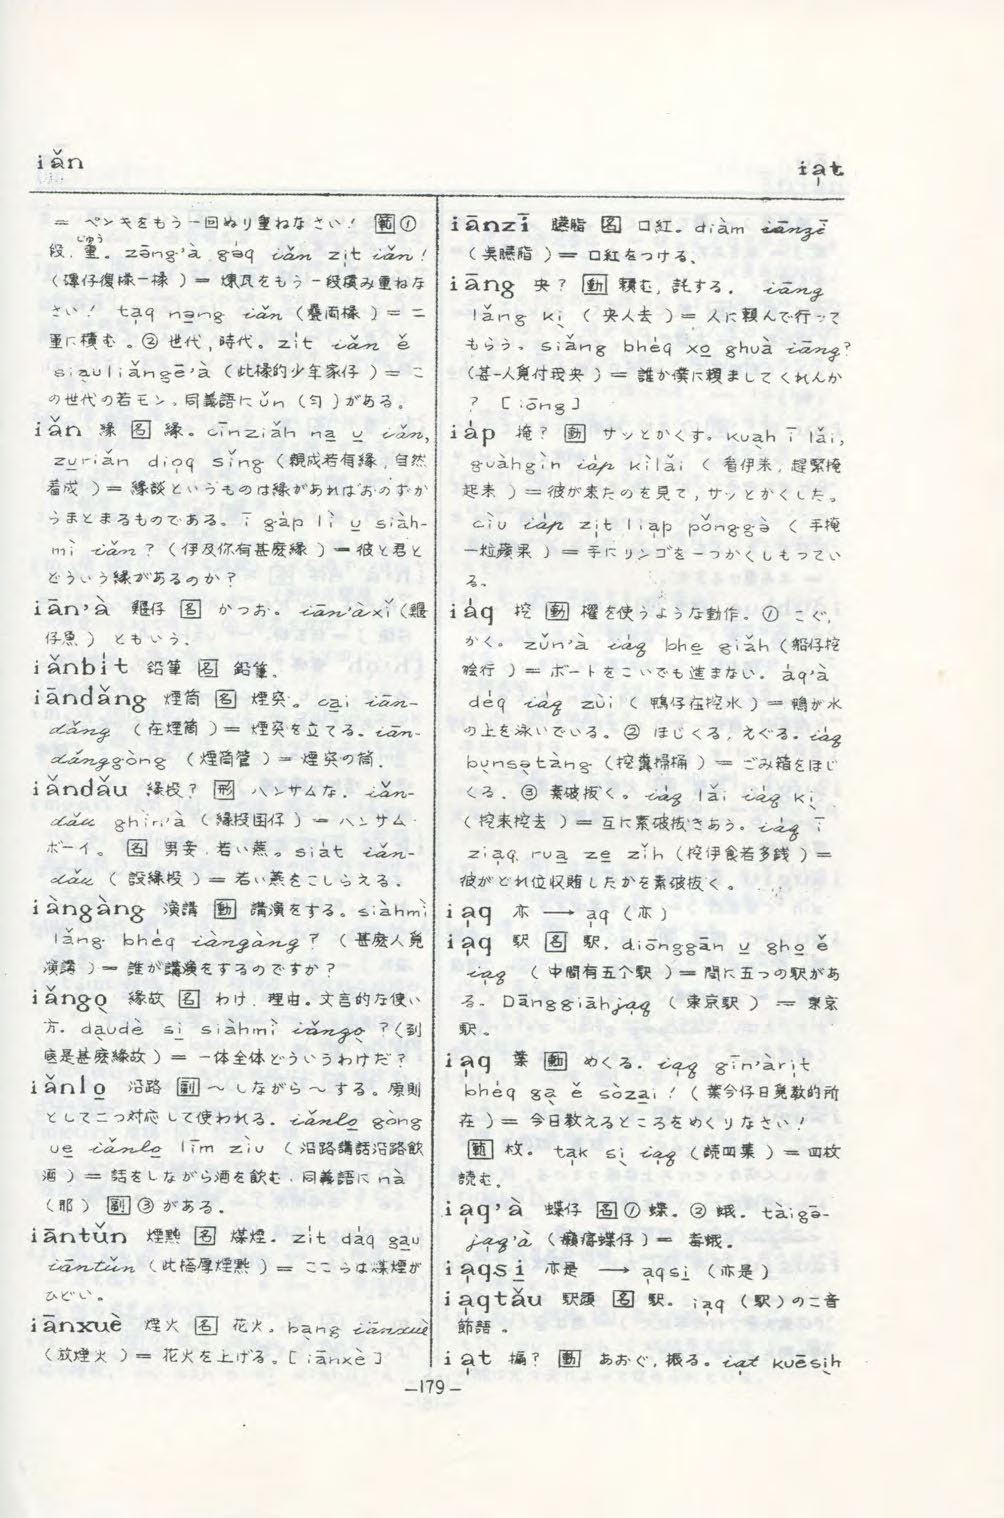 iǎn
ia̍t
= ペンキをもう一回ぬり重ねなさい! 範①
段,重。じゅう zāng'à gəq iǎn zi̍t iǎn!
(磚仔復檨一檨)= 煉瓦をもう一段積み重ねな
さい! ta̍q nəng iǎn (疊両檨)= 二
重に積む。② 世代,時代。zi̍t iǎn ě
siàuliǎngē'à (此檨的少年家仔)= こ
の世代の若モン。同義語に ǔn (匀)がある。
iǎn 縁 名 縁。cīnziǎh na u iǎn,
zuriǎn dioq sǐng (親成若有縁,自然
着成)= 縁談というものは縁があればおのずか
うまとまるものである。ī gáp lì u siàh-
mì iǎn? (伊及你有甚麽縁)= 彼と君と
どういう縁があるのか?
iān'à 鰋仔 名 かつお。iān'àxǐ (鰋
仔魚)ともいう。
iǎnbit 鉛筆 名 鉛筆。
iāndǎng 煙筒 名 煙突。cai iān-
dǎng (在煙筒)= 煙突を立てる。iān-
dǎnggòng (煙筒管)= 煙突の筒。
iǎndǎu 縁投? 形 ハンサムな。iǎn-
dǎu ghìn'à (縁投囝仔)= ハンサム・
ボーイ。名 男妾,若い燕。siát iǎn-
dǎu (設縁投)= 若い燕をこしらえる。
iàngàng 演講 動 講演をする。siàhmì
lǎng bhéq iàngàng? (甚麽人覓
演講)= 誰が講演をするのですか?
iǎngo 縁故 名 わけ,理由。文言的な使い
方。daudè si siàhmì iǎngo? (到
底是甚麽縁故)= 一体全体どういうわけだ?
iǎnlo 沿路 副 ~しながら~する。原則
として二つ対応して使われる。iǎnlo gòng
ue iǎnlo līm ziu (沿路講話沿路飲
酒)= 話をしながら酒を飲む。同義語に nà
(那)副③がある。
iāntǔn 煙黗 名 煤煙。zi̍t dáq gau
iāntǔn (此搭厚煙黗)= ここらは煤煙が
ひどい。
iānxuè 煙火 名 花火。bang iānxuè
(放煙火)= 花火を上げる。[iānxè]
iānzī 臙脂 名 口紅。diàm iānzī
(点臙脂)= 口紅をつける。
iāng 央? 動 頼む,託する。iāng
lǎng ki (央人去)= 人に頼んで行って
もらう。siǎng bhéq xo ghuà iāng?
(甚人覓付我央)= 誰か僕に頼ましてくれんか
? [iōng]
iáp 掩? 動 サッとかくす。kuah ī lǎi,
guàhgìn iáp kìlǎi (看伊来,趕緊掩
起来)= 彼が来たのを見て,サッとかくした。
ciu iáp zi̍t liap pǒnggə (手掩
一粒蘋果)= 手にリンゴを一つかくしもってい
る。
iáq 挖 動 櫂を使うような動作。① こぐ,
かく。zǔn'à iáq bhe giǎh (船仔挖
𣍐行)= ボートをこいでも進まない。áq'à
déq iáq zùi (鴨仔在挖水)= 鴨が水
の上を泳いでいる。② ほじくる,えぐる。iáq
bunsətàng (挖糞掃桶)= ごみ箱をほじ
くる。③ 素破抜く。iáq lǎi iáq ki
(挖来挖去)= 互に素破抜きあう。iáq ī
ziaq rua ze zǐh (挖伊食若多銭)=
彼がどれ位収賄したかを素破抜く。
iaq 亦 → aq (亦)
iaq 駅 名 駅。diōnggān u gho ě
iaq (中間有五个駅)= 間に五つの駅があ
る。Dānggiāhjaq (東京駅)= 東京
駅。
iaq 葉 動 めくる。iaq gīn'àrit
bhéq ga ě sòzai! (葉今仔日覓教的所
在)= 今日教えるところをめくりなさい!
範 枚。tak si iaq (読四葉)= 四枚
読む。
iaq'à 蝶仔 名① 蝶。② 蛾。tàigə-
jaq'à (癩𤺪蝶仔)= 毒蛾。
iaqsi 亦是 → aqsi (亦是)
iaqtǎu 駅頭 名 駅。iaq (駅)の二音
節語。
iat 搧? 動 あおぐ,振る。iat kuēsih
—179—